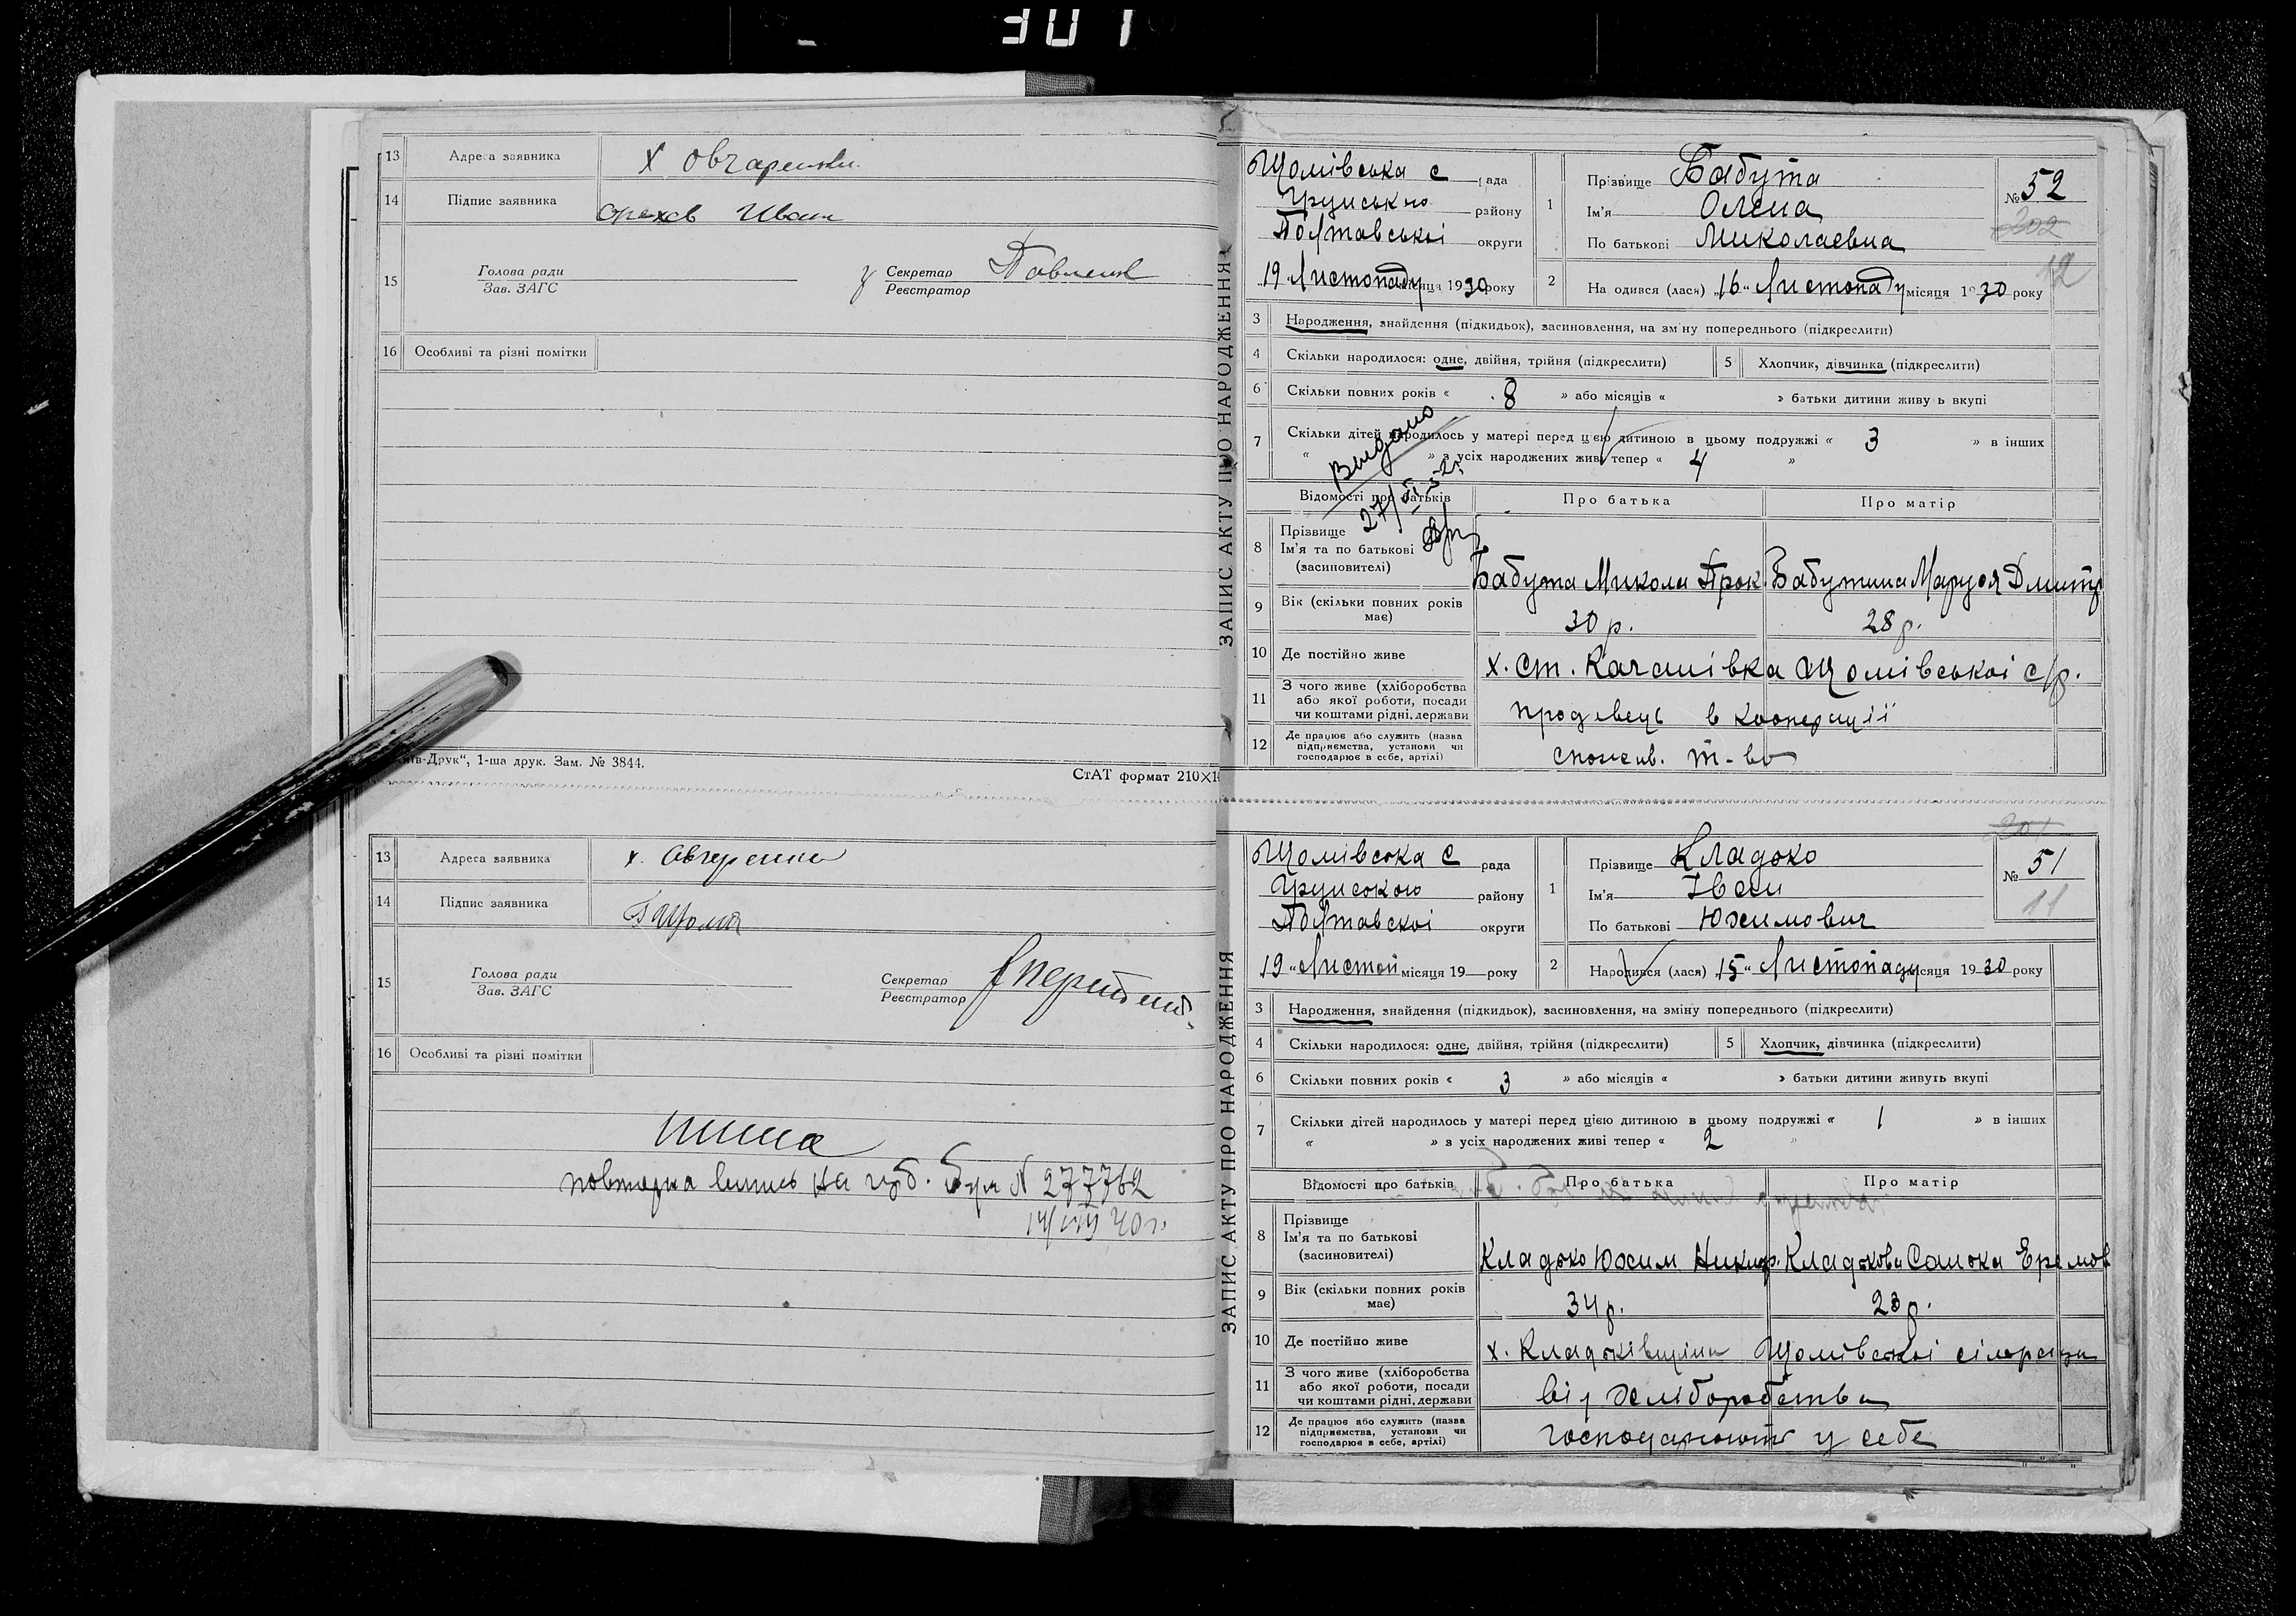 301
13 Адреса заявника х Овчаренки
14 Підпис заявника Орехов Иван
15 Голова ради
Зав. ЗАГС
Секретар
Реєстратор
16 Особливі та різні помітки
Друк“, 1-ша друк. Зам. № 3844.
СтАТ формат 210×14
13 Адреса заявника х. Овчаренки
14 Підпис заявника
15 Голова ради
Зав. ЗАГС
Секретар
Реєстратор
16 Особливі та різні помітки
повторна випись на
№ 277762
14/VIII 40 г.
ЗАПИС АКТУ ПРО НАРОДЖЕННЯ
Щомівська с рада
Грунського району
Полтавської округи
19 Листопаду місяця 1930 року
1 Прізвище Бабута
Ім'я Олена
По батькові Миколаевна
№ 52
202
12
2 На одився (лася) „16“ Листопаду місяця 1930 року
3 Народження, знайдення (підкидьок), засиновлення, на зміну попереднього (підкреслити)
4 Скільки народилося: одне, двійня, трійня (підкреслити) 5 Хлопчик, дівчинка (підкреслити)
6 Скільки повних років « 8 » або місяців « » батьки дитини живуть вкупі
7 Скільки дітей народилось у матері перед цією дитиною в цьому подружжі « 3 » в інших
« » з усіх народжених живі тепер « 4 »
Выдано
Відомості про батьків Про батька Про матір
8 Прізвище
Ім'я та по батькові
(засновителі)
Бабута Микола Прок. Бабутина Маруся Дмитр
9 Вік (скільки повних років має) 30 р. 28 р.
10 Де постійно живе х. Ст. Качанівка Щомівської с/р.
11 З чого живе (хліборобства
або якої роботи, посади
чи коштами рідні, держави
продавець в кооперації
12 Де працює або служить (назва
підприємства, установи чи
господарює в себе, артілі)
спожив. т-во
ЗАПИС АКТУ ПРО НАРОДЖЕННЯ
Щомівська с рада
Грунського району
Полтавскої округи
19 „Листоп місяця 19 року
1 Прізвище Кладько
Ім'я Іван
По батькові Юхимович
201
№ 51
11
2 Народився (лася) „15“ Листопаду місяця 1930 року
3 Народження, знайдення (підкидьок), засиновлення, на зміну попереднього (підкреслити)
4 Скільки народилося: одне, двійня, трійня (підкреслити) 5 Хлопчик, дівчинка (підкреслити)
6 Скільки повних років « 3 » або місяців « » батьки дитини живуть вкупі
7 Скільки дітей народилось у матері перед цією дитиною в цьому подружжі « 1 » в інших
« » з усіх народжених живі тепер « 2 »
Відомості про батьків Про батька Про матір
8 Прізвище
Ім'я та по батькові
(засиновителі)
Кладько Юхим Никиф. Кладькова Еремов
9 Вік (скільки повних років має) 34 р. 23 р.
10 Де постійно живе х. Кладьківщина Щомівської сільради
11 З чого живе (хліборобства
або якої роботи, посади
чи коштами рідні, держави
від хліборобства
12 Де працює або служить (назва
підприємства, установи чи
господарює в себе, артілі)
господарюють у себе